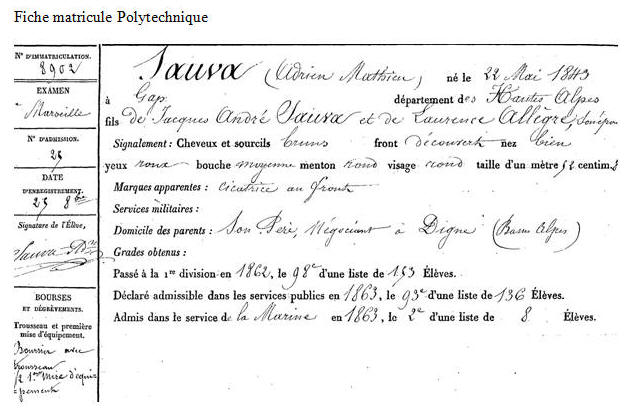 Fiche matricule Polytechnique
N° D'IMMATRICULATION.
8902
EXAMEN
à Marseille
N° D'ADMISSION.
25
DATE
D'ENREGISTREMENT.
25 8bre
Signature de l'Élève,
Sauva
BOURSES
ET DÉGRÈVEMENTS.
Trousseau et première
mise d'équipement.
Boursier avec
trousseau
1ère mise d'équi
pement
Sauva (Adrien Mathieu) né le 22 Mai 1843
à Gap département des Hautes Alpes
fils de Jacques André Sauva et de Laurence Allègre, son épou
Signalement: Cheveux et sourcils bruns front découvert nez bien
yeux roux bouche moyenne menton rond visage rond taille d'un mètre centim.
Marques apparentes : cicatrice au front
Services militaires :
Domicile des parents : Son Père, Négociant à Digne (Basses Alpes)
Grades obtenus :
Passé à la 1re division en 1862, le 98e d'une liste de 153 Élèves.
Déclaré admissible dans les services publics en 1863, le 93e d'une liste de 136 Élèves.
Admis dans le service de la Marine en 1863, le 2e d'une liste de 8 Élèves.